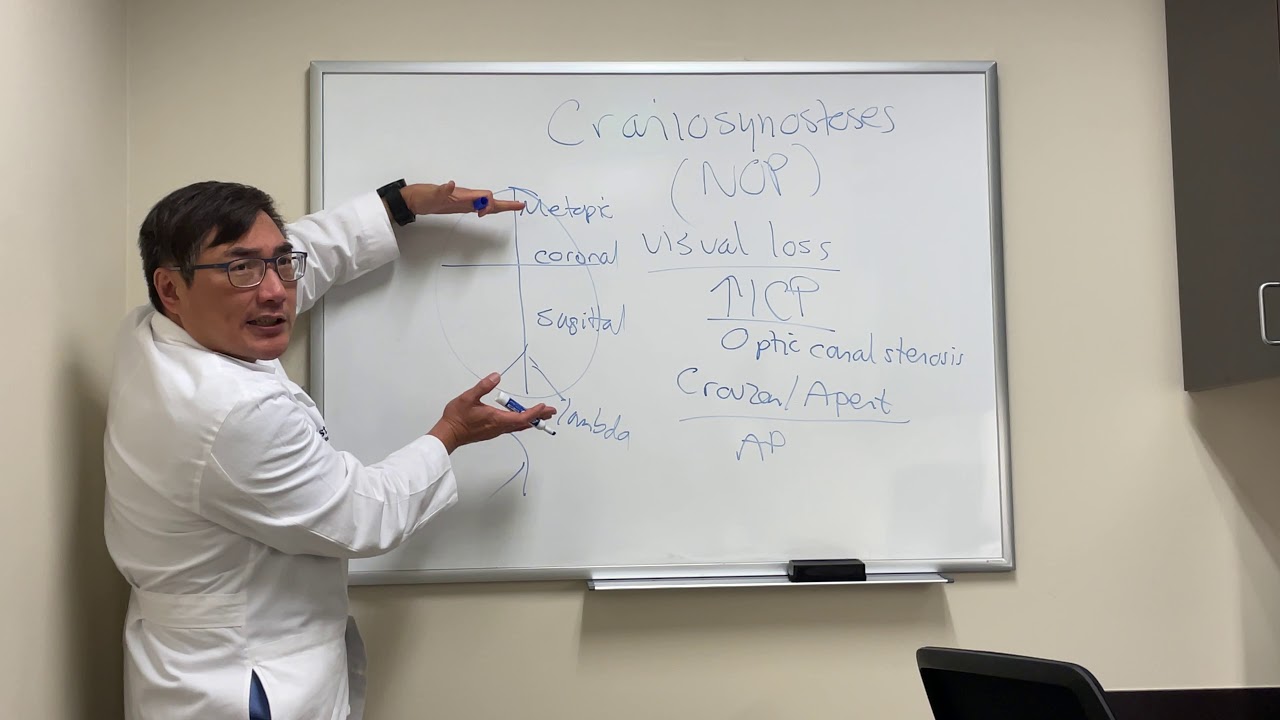 Craniosynostoses
(NOP)
Metopic
coronal
Sagittal
lambda
visual loss
↑ICP
Optic canal stenosis
Crouzon/Apert
AP